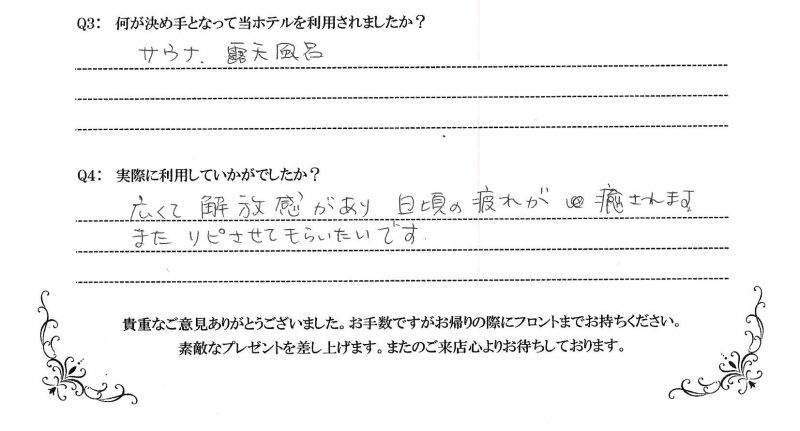 Q3: 何が決め手となって当ホテルを利用されましたか？
サウナ、露天風呂
Q4: 実際に利用していかがでしたか？
広くて 解放感があり 日頃の疲れが 癒されます
また リピさせてもらいたいです.
貴重なご意見ありがとうございました。お手数ですがお帰りの際にフロントまでお持ちください。
素敵なプレゼントを差し上げます。またのご来店心よりお待ちしております。